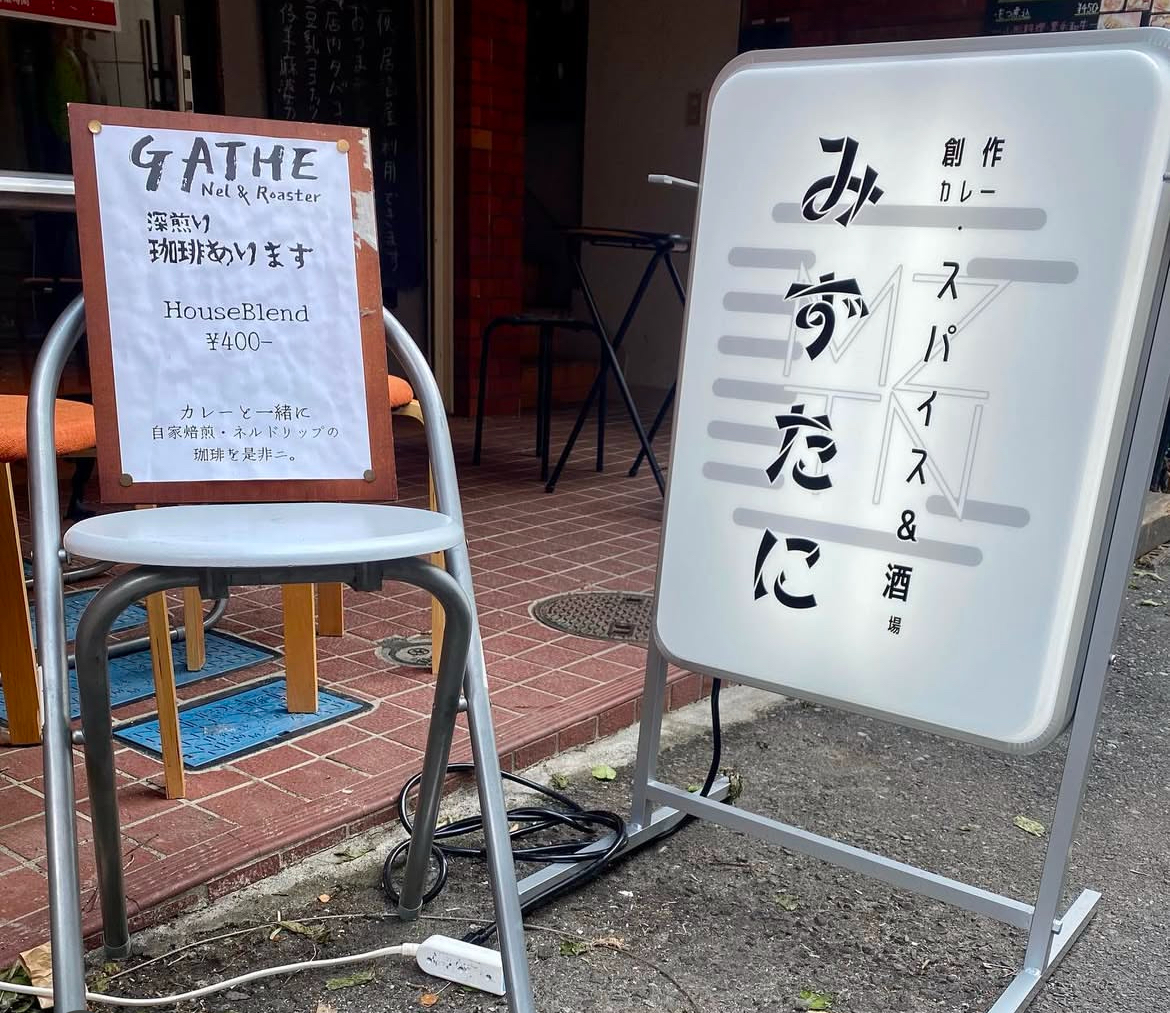 GATHE
Nel & Roaster
深煎り
珈琲あります
HouseBlend
¥400-
カレーと一緒に
自家焙煎・ネルドリップの
珈琲を是非ニ。
創作
カレー
・スパイス&酒場
みずたに
MZ
TN
¥450